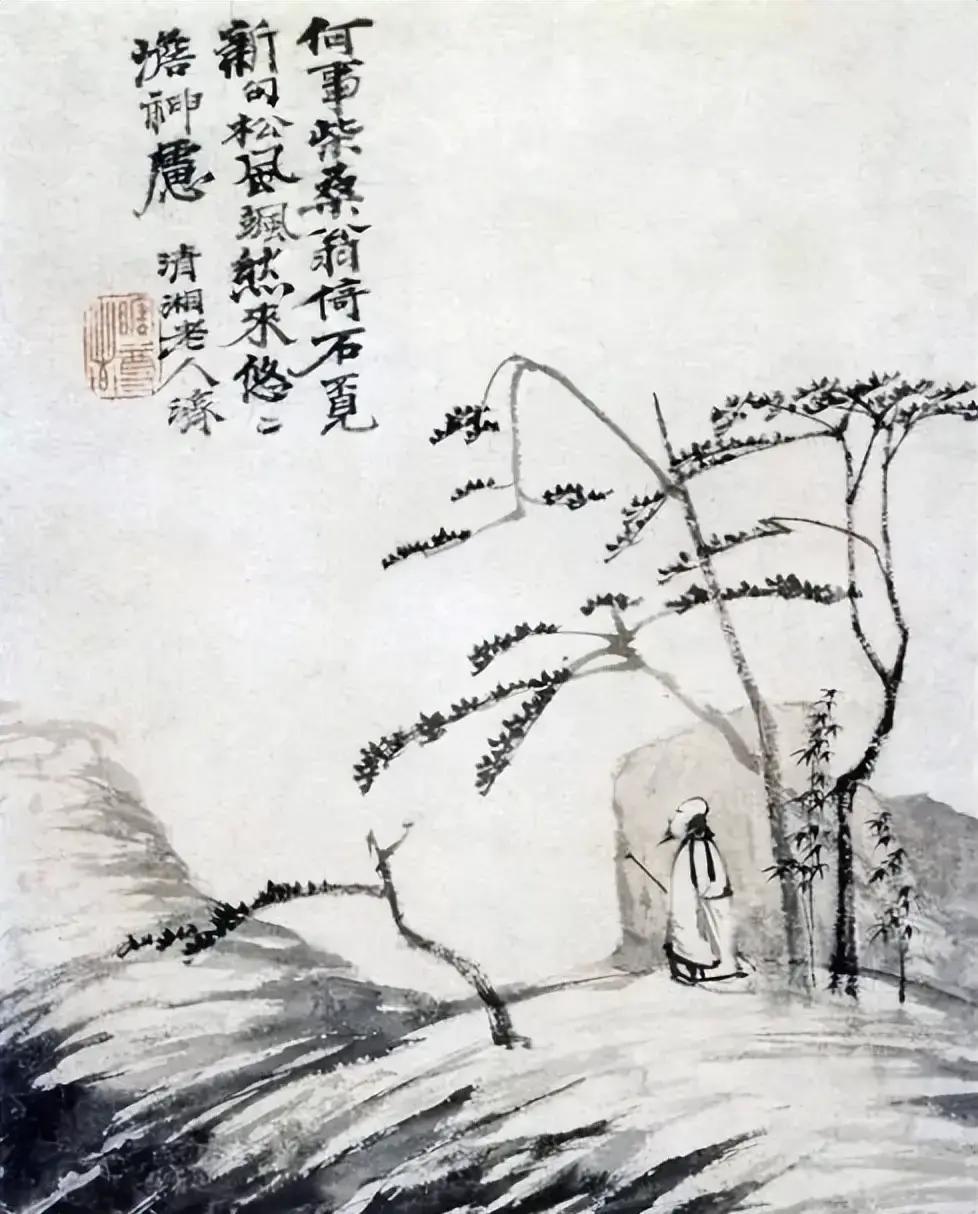 何事柴桑翁倚石覓
新句松風颯然來悠〻
澹神慮
清湘老人濟